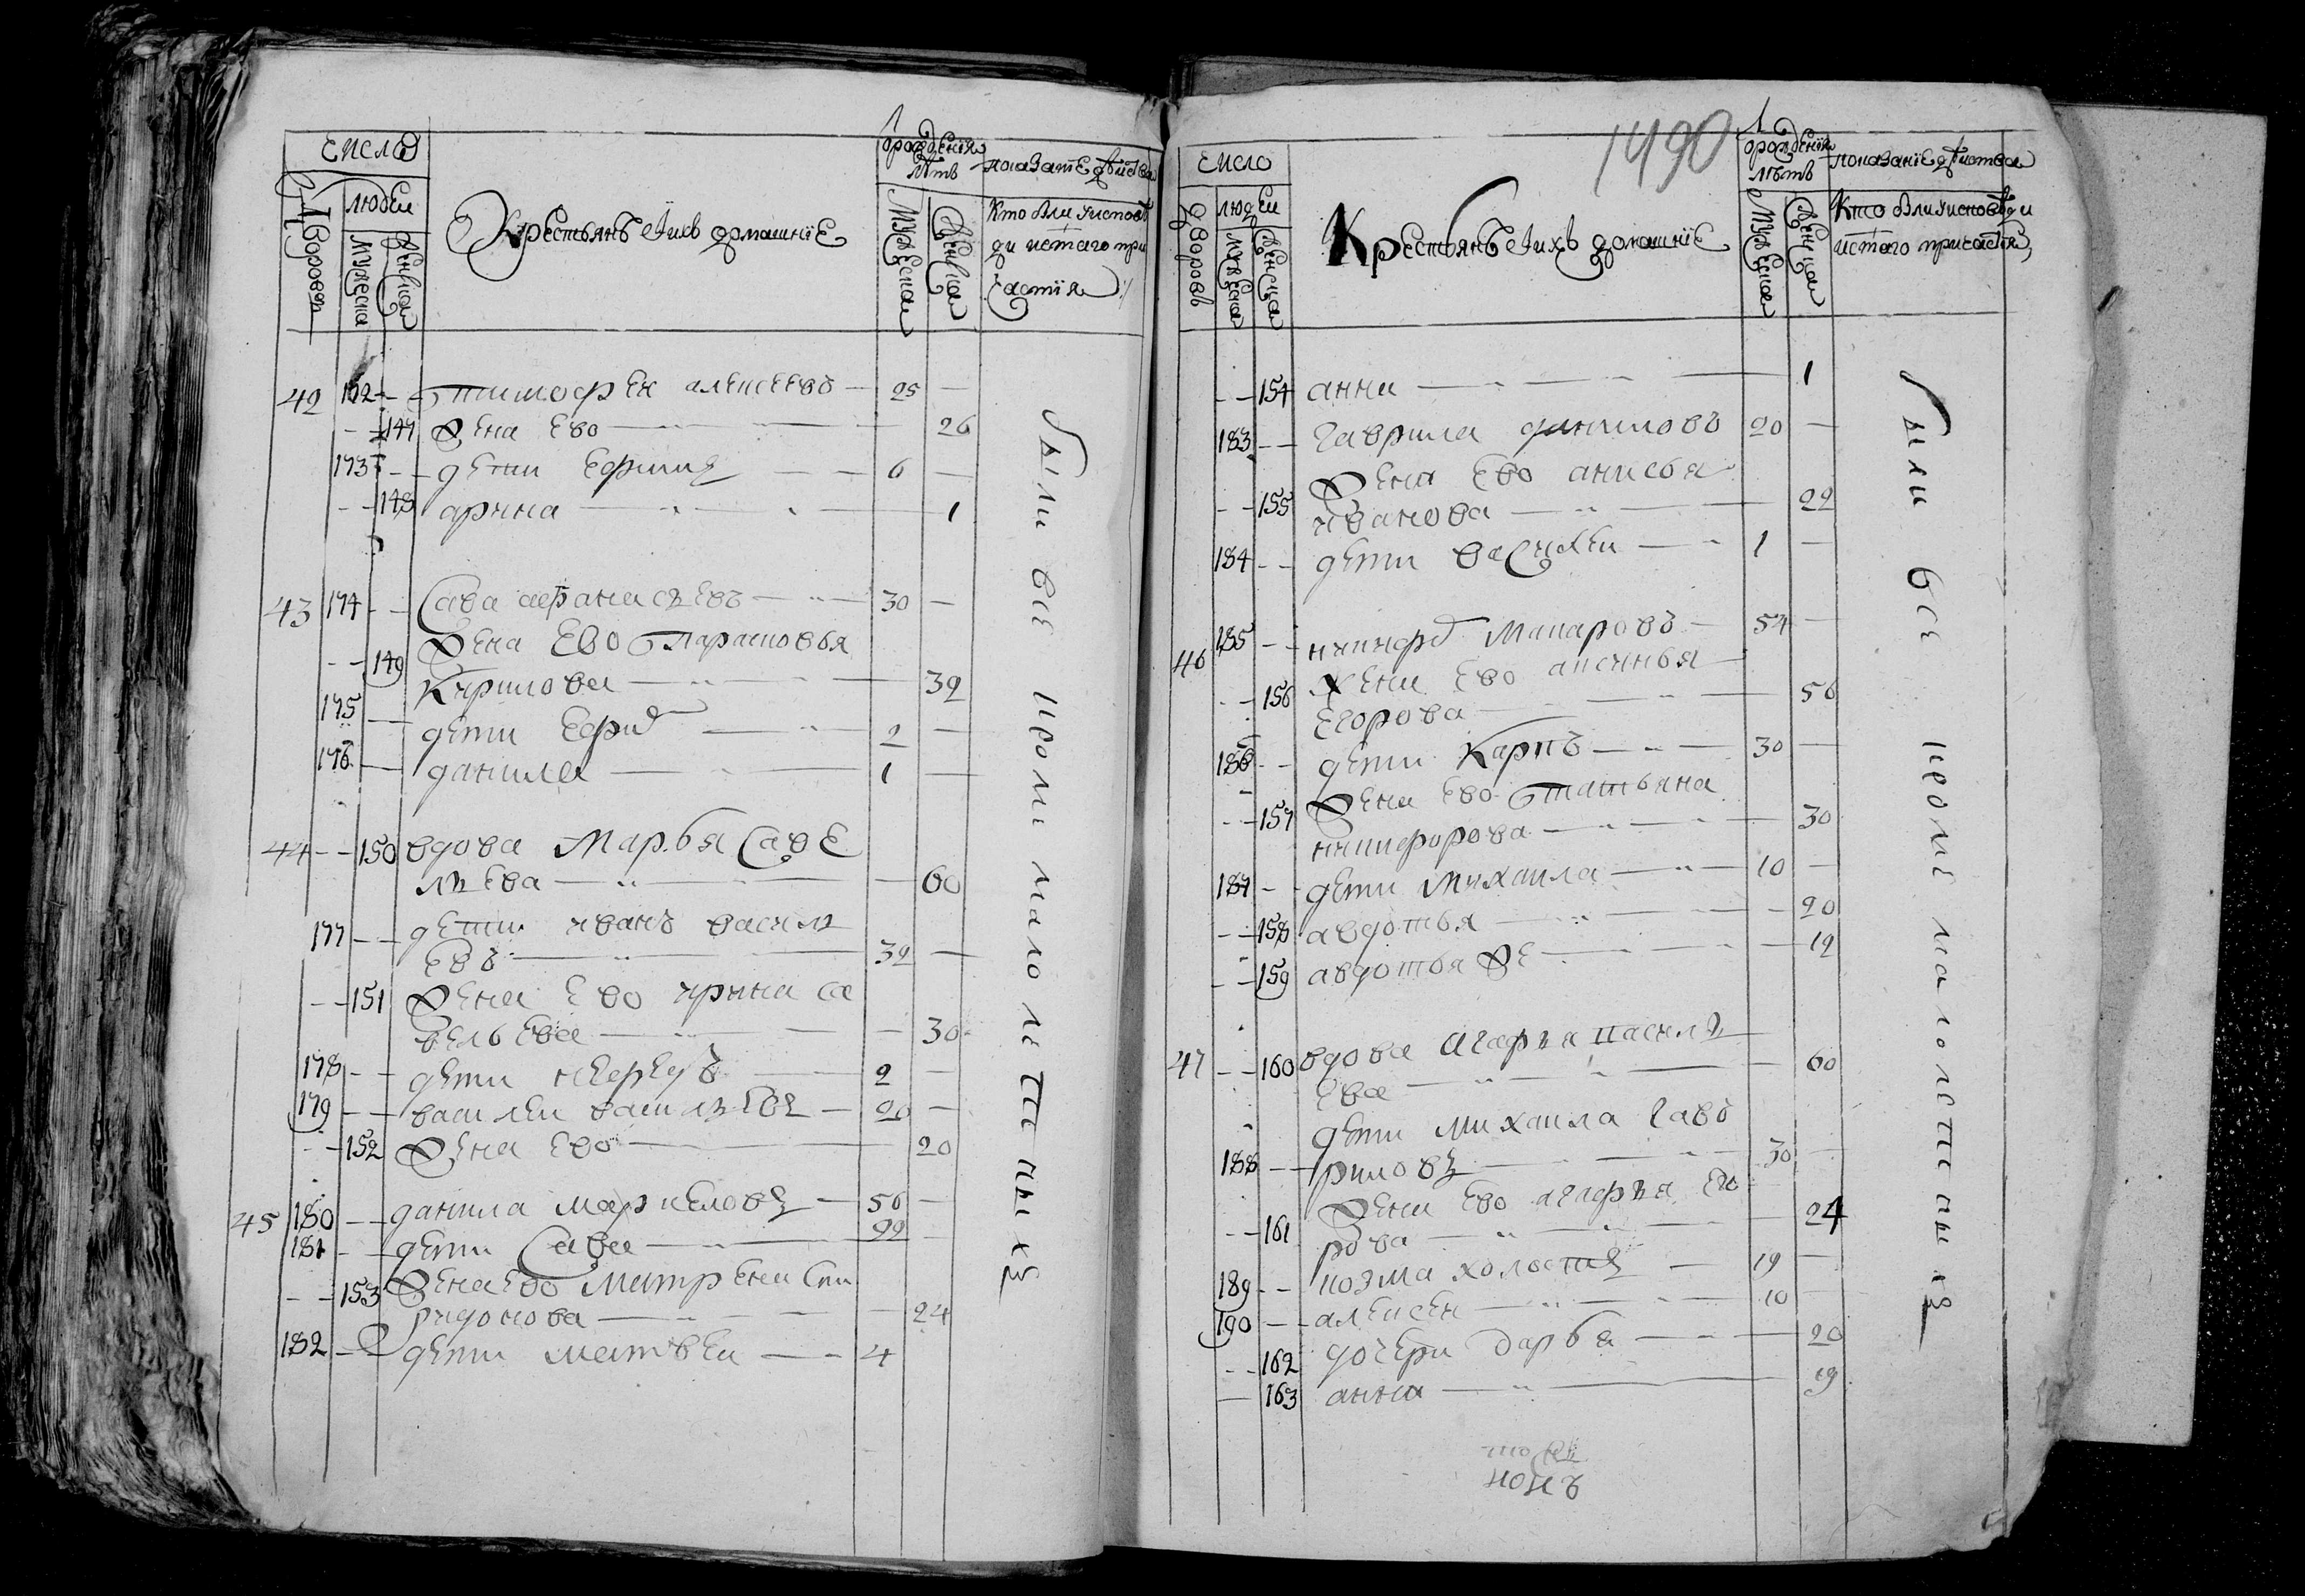 число
Дворовъ
людеи
мужеска
женска
Крестьянѣ и ихъ домашние
От рождения лѣтъ
мужеска
женска
показание действа
Кто были у исповѣ
ди и с͠таго при
частия
42 172 – – тимофеи алексеевъ – 25 –
– – 147 жена ево – 26
173 – – дети ефимъ – 6 –
– – 148 арина – 1
43 174 – – Сава афанасьевъ – 30 –
жена ево парасковья
– – 149 Кирилова – 32
175 – дети ефим – 2 –
176 – данила – 1 –
44 – – 150 вдова Марья Саве
льева – 60
177 – – дети иванъ василь
евъ – 32 –
– – 151 жена ево ирина са
вельева – 30
178 – – дети – 2 –
179 – – василеи васильевъ – 20 –
– – 152 жена ево – 20
45 180 – – данила маркеловъ – 56 –
181 – – дети Сава – 22 –
– – 153 жена ево Матрена Спи
ридонова – 24
182 – – дети матвеи – 4
были все кроме малолетныхъ
1490
число
Дворовъ
людеи
мужеска
женска
Крестьянѣ и ихъ домашние
От рождения лѣтъ
мужеска
женска
показание действа
Кто были у исповѣди
и с͠таго причастия
– – 154 анна – 1
183 – – гаврила даниловъ 20 –
жена ево анисья
– – 155 иванова – 22
184 – – дети василеи – 1 –
46 185 – – никифор Макаровъ – 54 –
жена ево аксинья
– – 156 егорова – 56
186 – – дети Карпъ – 30 –
жена ево татьяна
– – 157 никифорова – 30
187 – – дети михаила – 10 –
– – 158 авдотья – 20
– – 159 авдотья же – 12
47 – – 160 вдова агафья василь
ева – 60
дети михаила гавъ
188 – – риловъ – 30 –
жена ево агафья его
– – 161 рова – 24
189 – – козма холостъ – 19 –
190 – – алексеи – 10 –
– – 162 дочери дарья – 20
– 163 анна – 19
были все кроме малолетныхъ